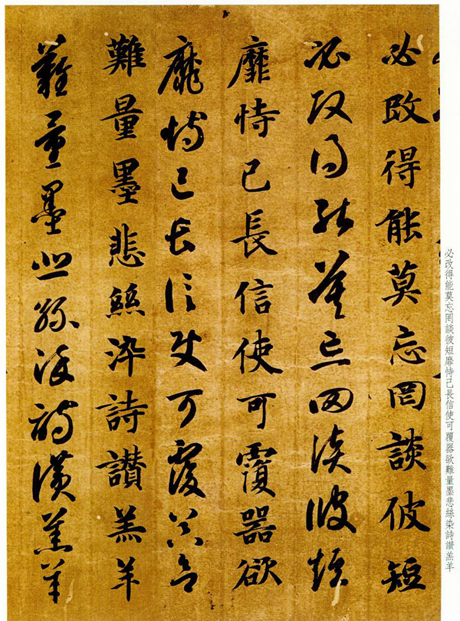 必改得能莫忘罔談彼短
必改得能莫忘罔談彼短
靡恃己長信使可覆器欲
靡恃己長信使可覆器欲
難量墨悲絲染詩讚羔羊
難量墨悲絲染詩讚羔羊
必改得能莫忘罔談彼短靡恃己長信使可覆器欲難量墨悲絲染詩讚羔羊